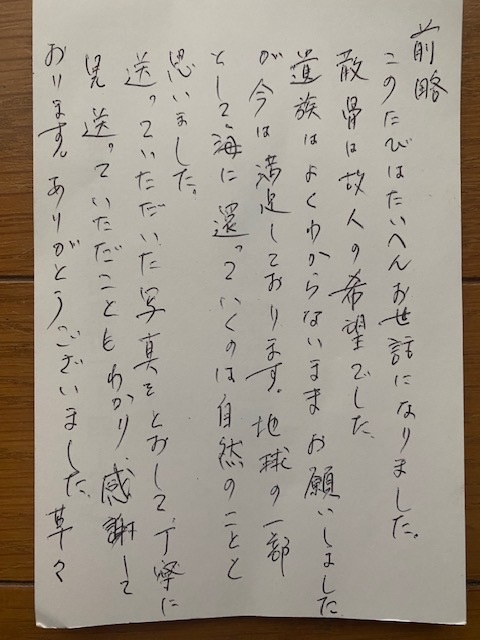 前略
このたびはたいへんお世話になりました。
散骨は故人の希望でした。
遺族はよくわからないままお願いしました
が今は満足しております。地球の一部
として海に還っていくのは自然のことと
思いました。
送っていただいた写真をとおして、丁寧に
見送っていただこともわかり、感謝して
おります。ありがとうございました。草々